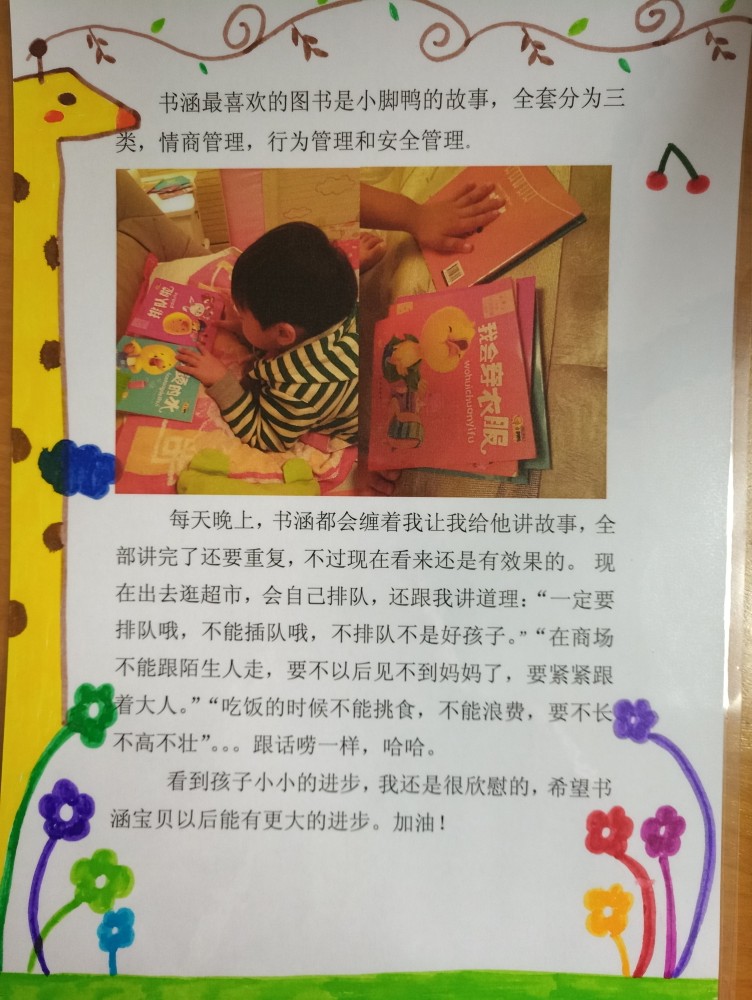 书涵最喜欢的图书是小脚鸭的故事，全套分为三
类，情商管理，行为管理和安全管理.
排队喽
我会穿衣服
wohuichuanyifu
的水
每天晚上，书涵都会缠着我让我给他讲故事，全
部讲完了还要重复，不过现在看来还是有效果的。现
在出去逛超市，会自己排队，还跟我讲道理：“一定要
排队哦，不能插队哦，不排队不是好孩子。”“在商场
不能跟陌生人走，要不以后见不到妈妈了，要紧紧跟
着大人。”“吃饭的时候不能挑食，不能浪费，要不长
不高不壮”。。。跟话唠一样，哈哈。
看到孩子小小的进步，我还是很欣慰的，希望书
涵宝贝以后能有更大的进步。加油！